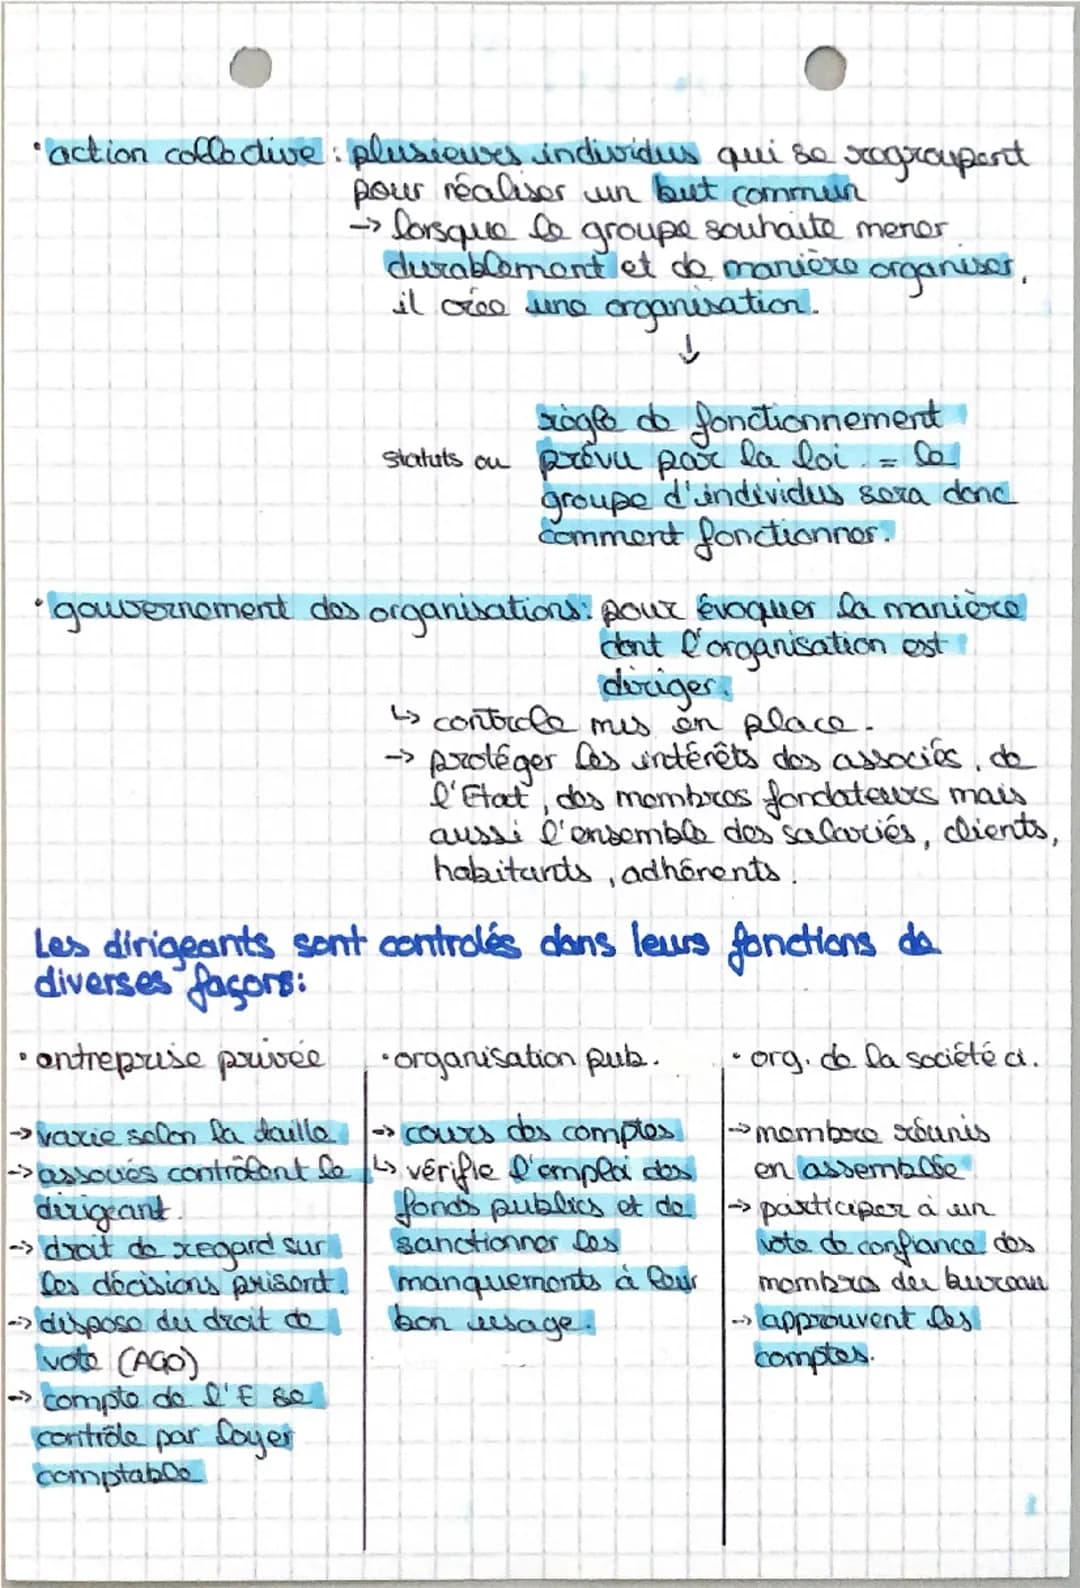 · action collective : plusieurs individus qui se regroupent
pour réaliser un but commun
-> lorsque le groupe souhaite mener
durablement et de manière organiser,
il crée une organisation.
↓
règle de fonctionnement
statuts ou prévu par la loi = le
groupe d'individus sera donc
comment fonctionner.
· gouvernement des organisations: pour évoquer la manière
dont l'organisation est
diriger.
↳ controle mis en place.
-> protéger les intérêts des associés, de
l'Etat, des membres fondateurs mais
aussi l'ensemble des salariés, clients,
habitants, adhérents.
Les dirigeants sont controlés dans leurs fonctions de
diverses façons:
· entreprise privée
-> varie selon la taille
-> associés contrôlent le
dirigeant.
-> droit de regard sur
les décisions prisent.
-> dispose du droit de
vote (AGO)
-> compte de l'E se
contrôle par
comptable
· organisation pub.
-> cours des comptes
↳ vérifie l'emploi des
fonds publics et de
sanctionner les
manquements à leur
bon usage.
· org. de la société ci.
-> membre réunis
en assemblée
-> participer à un
vote de confiance des
membres du bureau
-> approuvent les
comptes.